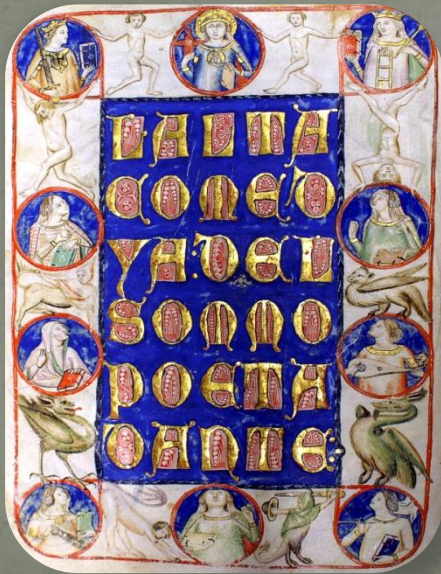 LALMA
COMED
YA:DEL
SOMMO
POETA
DANTE